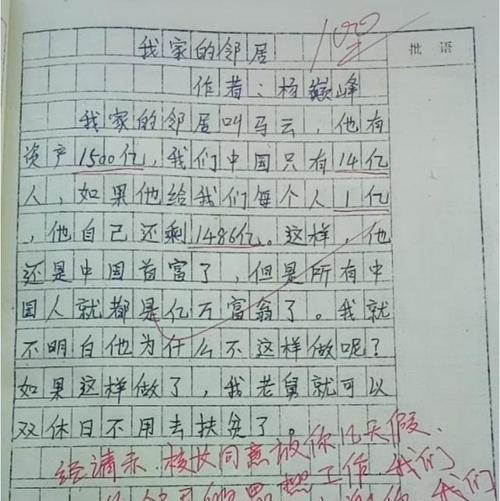 我家的邻居
100
批语
作者:杨巅峰
我家的邻居叫马云,他有
资产1500亿,我们中国只有14亿
人,如果他给我们每个人1亿
,他自己还剩1486亿。这样,他
还是中国首富了,但是所有中
国人就都是亿万富翁了。我就
不明白他为什么不这样做呢?
如果这样做了,我老舅就可以
双休日不用去扶贫了。
经请示,校长同意放你几天假、
思想工作,我们
我们